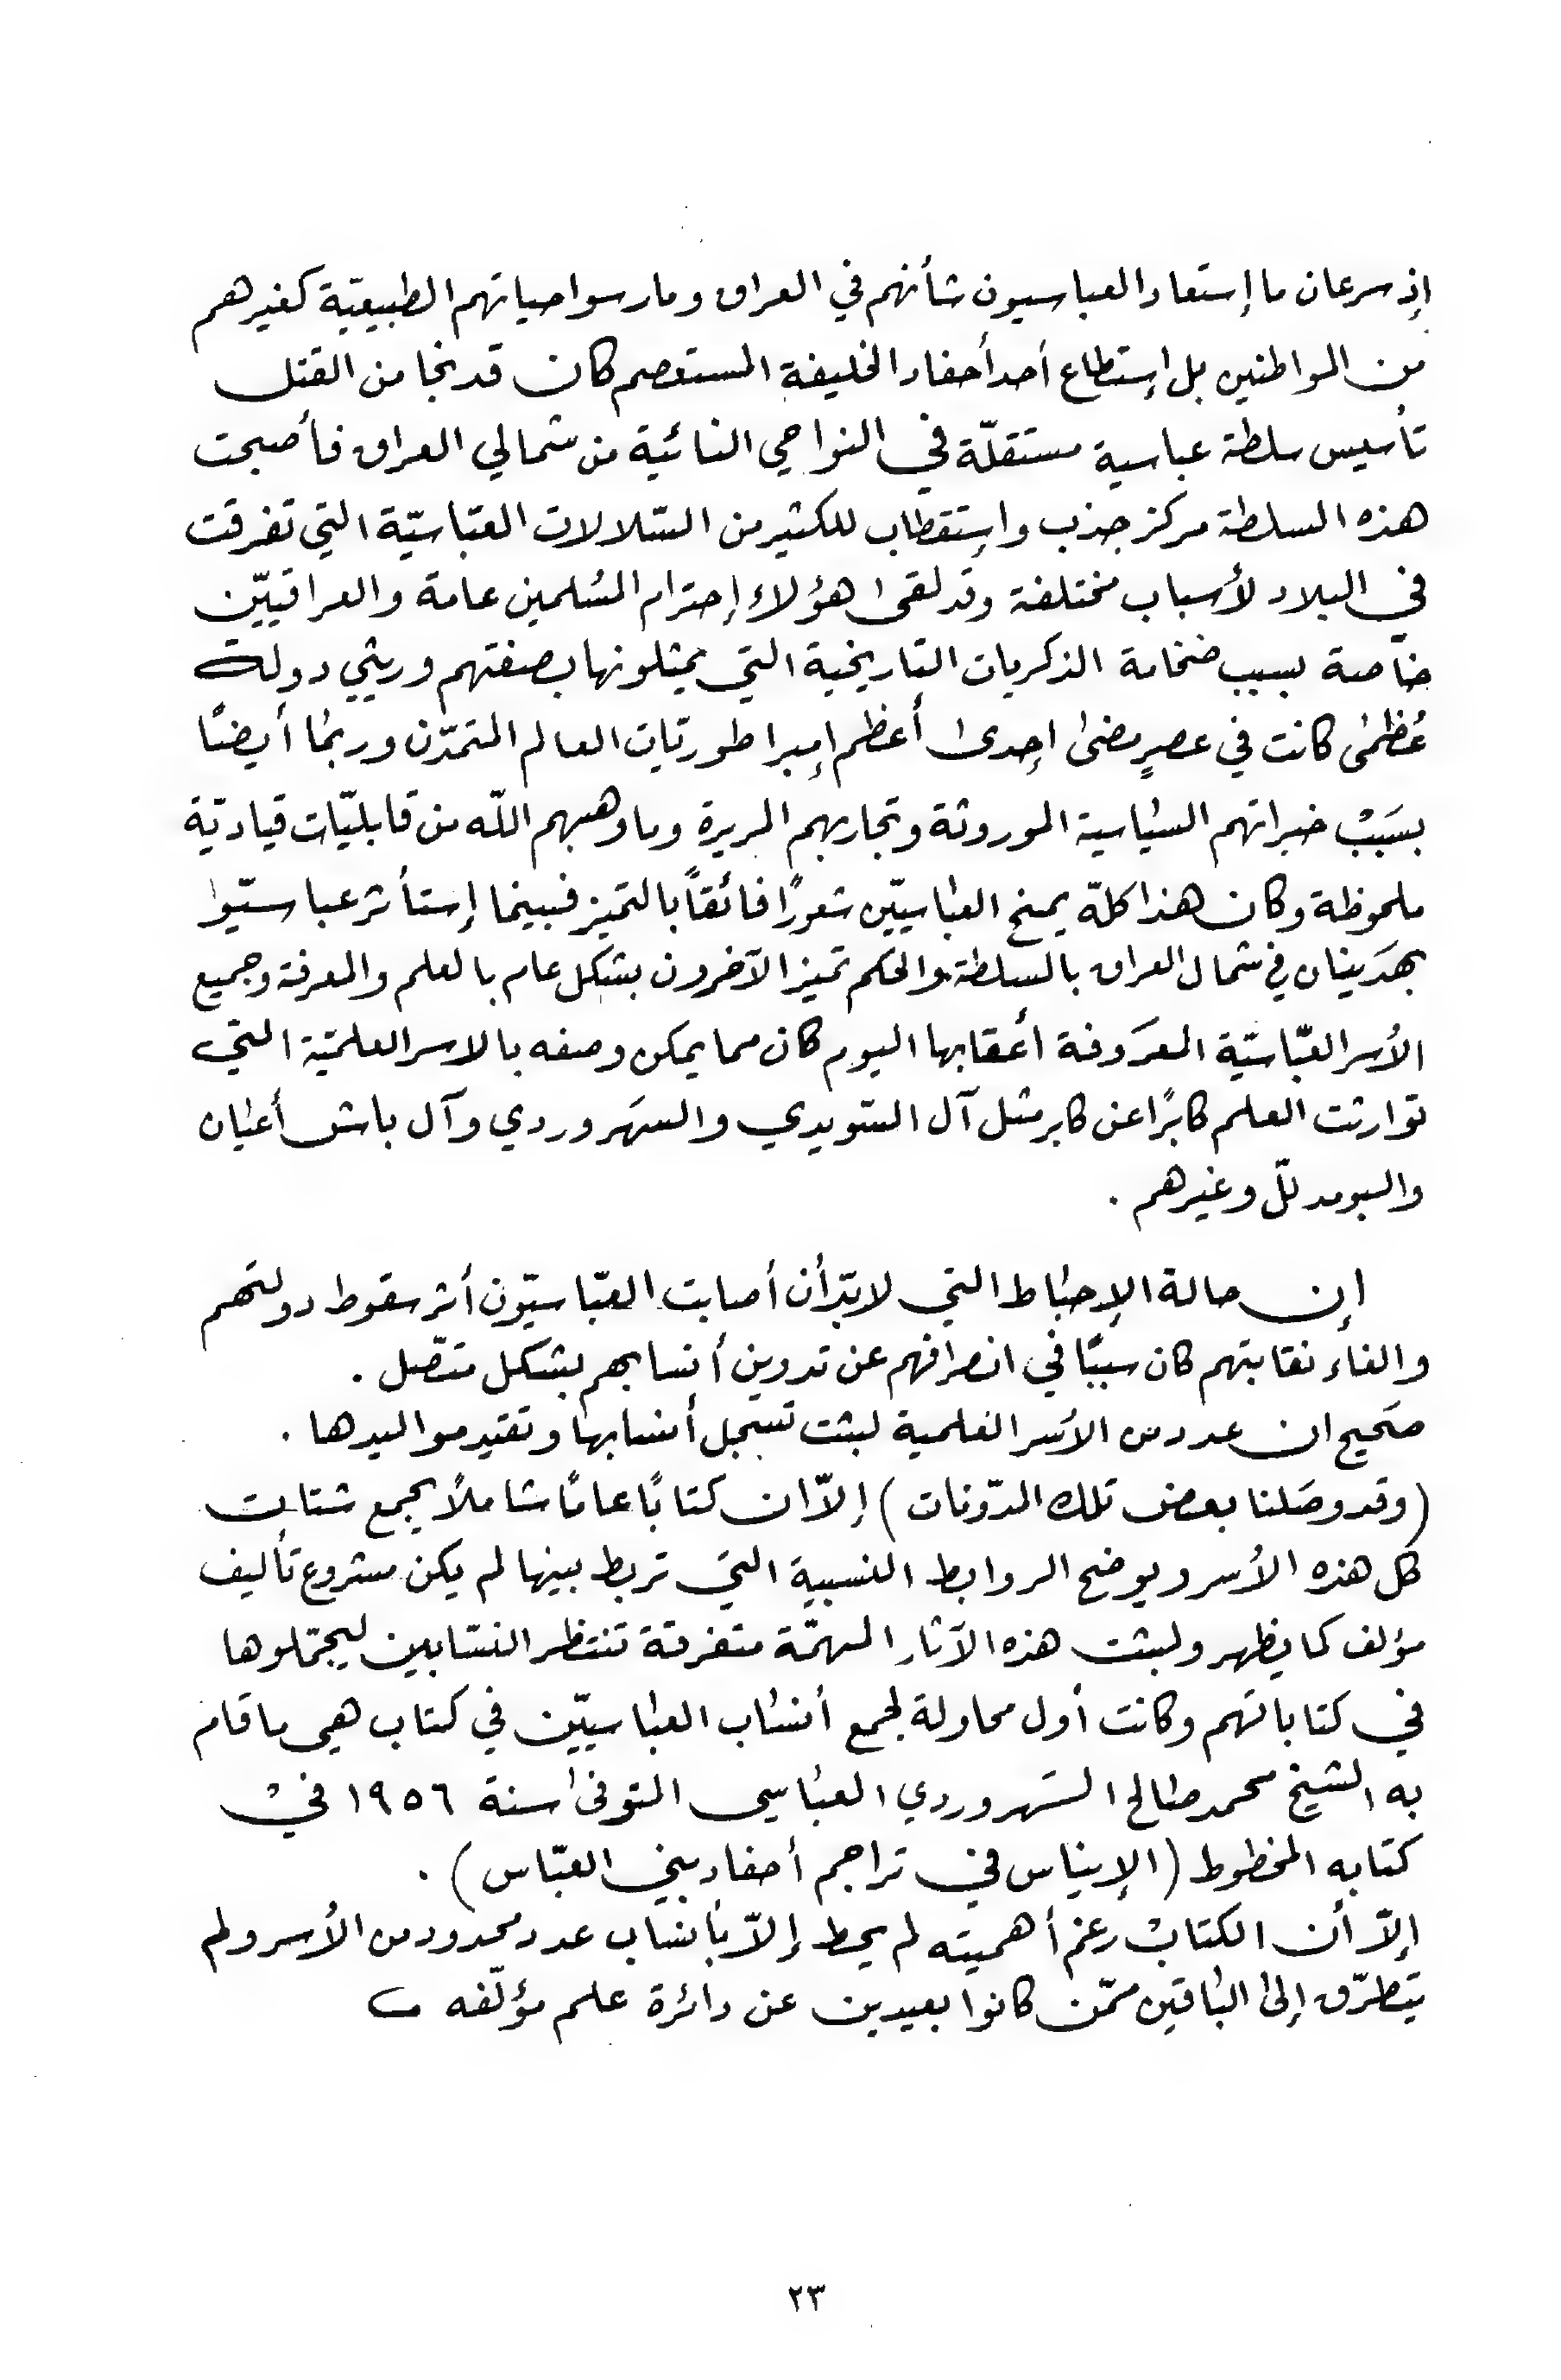 إذ سرعان ما إستعاد العباسيون شأنهم في العراق ومارسوا حياتهم الطبيعيّة كغيرهم
من المواطنين بل إستطاع أحد أحفاد الخليفة المستعصم كان قد نجا من القتل
تأسيس سلطة عباسية مستقلّة في النواحي النائية من شمالي العراق فأصبحت
هذه السلطة مركز جذب واستقطاب للكثير من السّلالات العبّاسيّة التي تفرقت
في البلاد لأسباب مختلفة وقد لقى هؤلاء إحترام المسلمين عامة والعراقييّن
خاصة بسبب ضخامة الذكريات التاريخية التي يمثلونها بصفتهم وريثي دولة
عُظمى كانت في عصرٍ مضى احدى أعظم إمبراطوريّات العالم المتمدّن وربما أيضًا
بسَبب خبراتهم السياسية الموروثة وتجاربهم المريرة وما وهبهم اللّه من قابليّات قياديّة
ملحوظة وكان هذا كلّه يمنح العباسييّن شعورًا فائقاً بالتميز فبينما إستأثر عباسيّوا
بهدَينان في شمال العراق بالسلطة والحكم تميز الآخرون بشكل عام بالعلم والمعرفة وجميع
الأسر العبّاسيّة المعرَوفة أعقابها اليوم كان مما يمكن وصفه بالاسر العلميّة التي
توارثت العلم كابرًا عن كابر مثل آل السّويدي والسهَروردي وآل باش أعيان
والبومدلّل وغيرهم .
إن حالة الإحباط التي لابدّ أن أصابت العبّاسيّون أثر سقوط دولتهم
والغاء نقابتهم كان سببًا في انصرافهم عن تدوين أنسابهم بشكل متصّل .
صَحيح ان عدد من الأسَر العلمية لبثت تسجل أنسابها وتقيد مواليدها .
(وقد وصَلنا بعض تلك المدّونات) إلاّ ان كتابًا عامًا شاملاً يجمع شتات
كل هذه الأسر ويوضح الروابط النسبية التي تربط بينها لم يكن مشروع تأليف
مؤلف كما يظهر ولبثت هذه الآثار المهمّة متفرقة تنتظر النسّابين ليجمّلوها
في كتاباتهم وكانت أول محاولة لجمع أنساب العباسييّن في كتاب هي ما قام
به الشيخ محمد صالح السَهروردي العباسي المتوفى سنة ١٩٥٦ في
كتابه المخطوط (الإيناس في تراجم أحفاد بني العبّاس) .
إلاّ أن الكتاب رغم أهميته لم يحط إلاّ بأنساب عدد محدود من الأسر ولم
يتطرّق إلى الباقين ممّن كانوا بعيدين عن دائرة علم مؤلّفه
٢٣